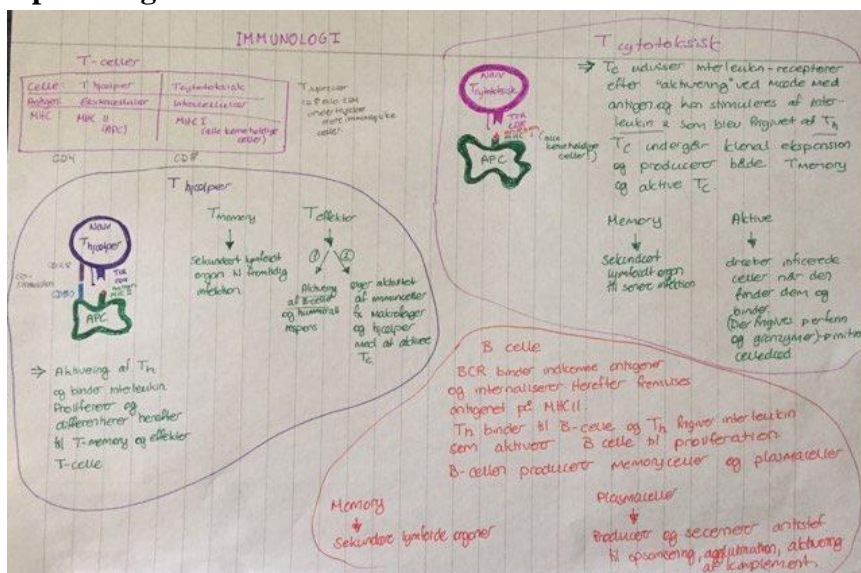 IMMUNOLOGI
T-celler
Celle: T hjælper Tcytotoksisk
Antigen: Ekstracellulær Intracellulær
MHC: MHC II MHC I
(APC) (alle kerneholdige
celler)
CD4 CD8
celler.
T hjælper
Naiv
T hjælper
CD28
TCR
CD4
antigen
MHC II
CD80
APC
⇒ Aktivering af Th
og binder interleukin.
Prolifererer og
differentierer herefter
til T-memory og effektor
T-celle.
Tmemory
Sekundært lymfoidt
organ til fremtidig
infektion.
Teffektor
① ②
Aktivering
af B-celler
og humoral
respons
øger aktivitet
af immunceller
fx Makrofager
og hjælper
med at aktivere
Tc.
T cytotoksisk
Naiv
Tcytotoksisk
TCR
CD8
antigen
MHC I (alle
kerneholdige
celler!)
APC
⇒ Tc udviser interleukin-receptorer
efter "aktivering" ved møde med
antigen og kan stimuleres af inter-
leukin 2 som blev frigivet af Th
Tc undergår klonal ekspansion
og producerer både Tmemory
og aktive Tc.
Memory
Sekundært
lymfoidt organ
til senere infektion
Aktive
dræber inficerede
celler når den
finder dem og
binder.
(Der frigives perforin
og granzymer)
celledød
B celle
BCR binder indkomne antigener
og internaliserer. Herefter fremvises
antigenet på MHCII.
Th binder til B-celle og Th frigiver interleukin
som aktiverer B celle til proliferation.
B-cellen producerer memoryceller og plasmaceller
Memory
Sekundære lymfoide organer
Plasmaceller
Producerer og secernerer antistof
til opsonisering, agglutination, aktivering
af komplement.